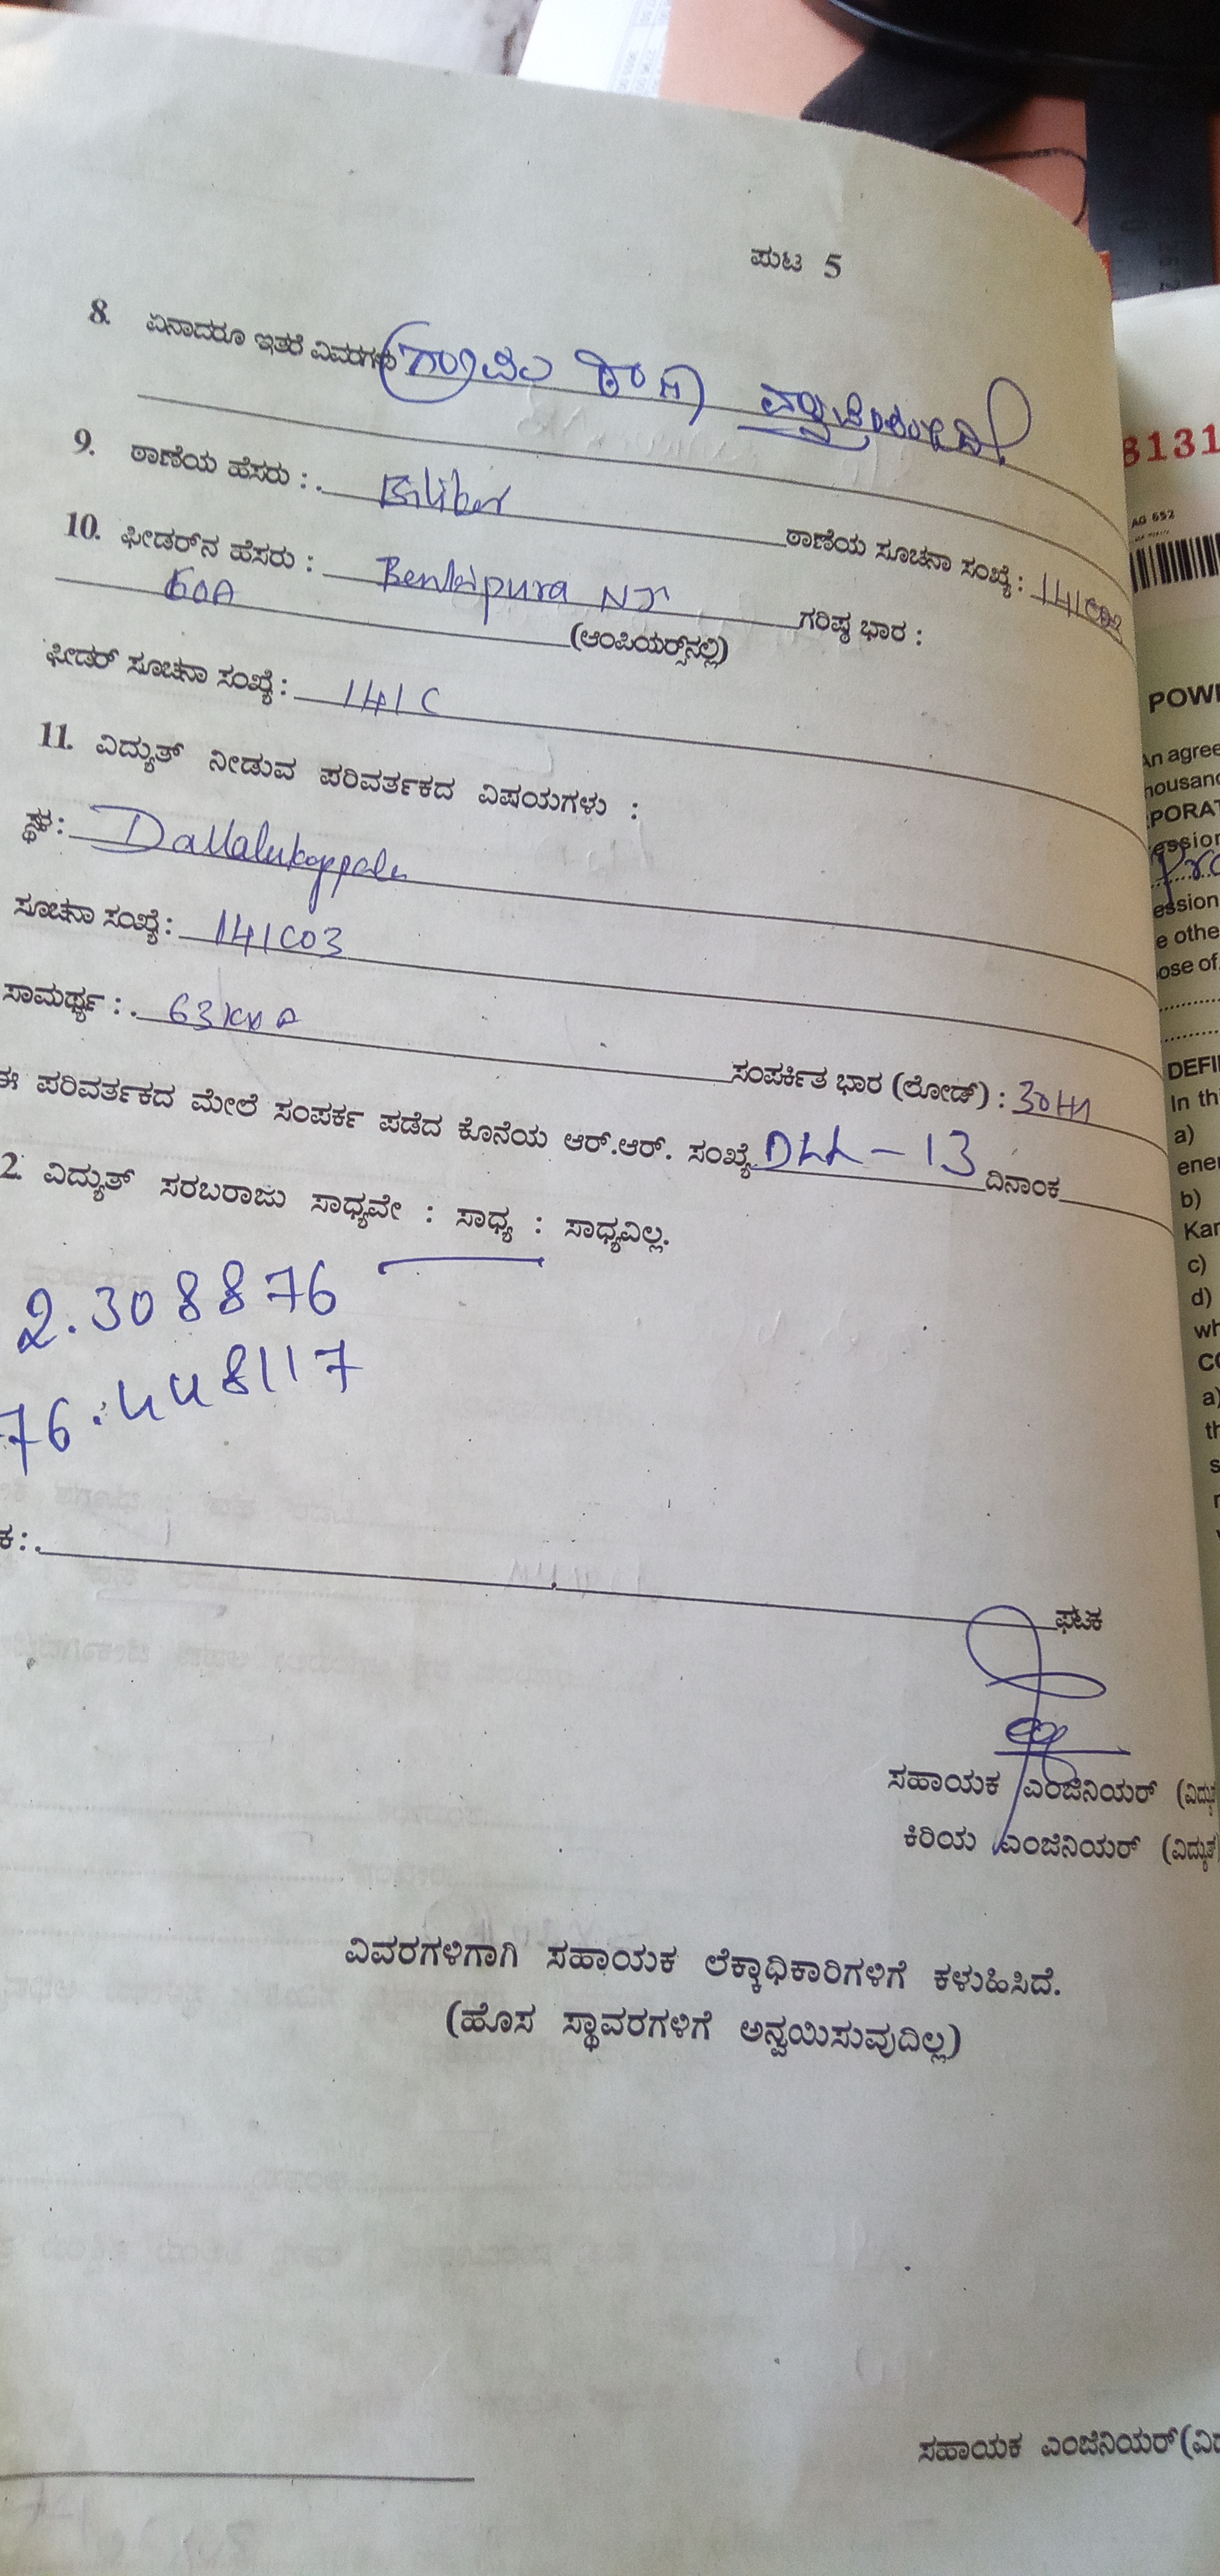 ಪುಟ 5
8. ಏನಾದರೂ ಇತರೆ ವಿವರಗಳು
9. ಠಾಣೆಯ ಹೆಸರು : Bilikere ಠಾಣೆಯ ಸೂಚನಾ ಸಂಖ್ಯೆ :
10. ಫೀಡರ್‌ನ ಹೆಸರು : Benkipura NJY ಗರಿಷ್ಠ ಭಾರ :
60A (ಆಂಪಿಯರ್ಸ್‌ನಲ್ಲಿ)
ಫೀಡರ್ ಸೂಚನಾ ಸಂಖ್ಯೆ : 141C
11. ವಿದ್ಯುತ್ ನೀಡುವ ಪರಿವರ್ತಕದ ವಿಷಯಗಳು :
ಸ್ಥಳ : Dallalukoppalu
ಸೂಚನಾ ಸಂಖ್ಯೆ : 141C03
ಸಾಮರ್ಥ್ಯ : 63KVA ಸಂಪರ್ಕಿತ ಭಾರ (ಲೋಡ್) : 30
ಈ ಪರಿವರ್ತಕದ ಮೇಲೆ ಸಂಪರ್ಕ ಪಡೆದ ಕೊನೆಯ ಆರ್.ಆರ್. ಸಂಖ್ಯೆ DLL-13 ದಿನಾಂಕ
2. ವಿದ್ಯುತ್ ಸರಬರಾಜು ಸಾಧ್ಯವೇ : ಸಾಧ್ಯ : ಸಾಧ್ಯವಿಲ್ಲ.
2.308876
76.448117
ಕ :
ಘಟಕ
ಸಹಾಯಕ ಎಂಜಿನಿಯರ್ (ವಿದ್ಯುತ್
ಕಿರಿಯ ಎಂಜಿನಿಯರ್ (ವಿದ್ಯುತ್
ವಿವರಗಳಿಗಾಗಿ ಸಹಾಯಕ ಲೆಕ್ಕಾಧಿಕಾರಿಗಳಿಗೆ ಕಳುಹಿಸಿದೆ.
(ಹೊಸ ಸ್ಥಾವರಗಳಿಗೆ ಅನ್ವಯಿಸುವುದಿಲ್ಲ)
ಸಹಾಯಕ ಎಂಜಿನಿಯರ್ (ವಿ
8131
AG 652
POW
An agree
PORAT
e othe
ose of
DEFI
In th
a)
ener
b)
Kar
c)
d)
wh
CO
a)
th